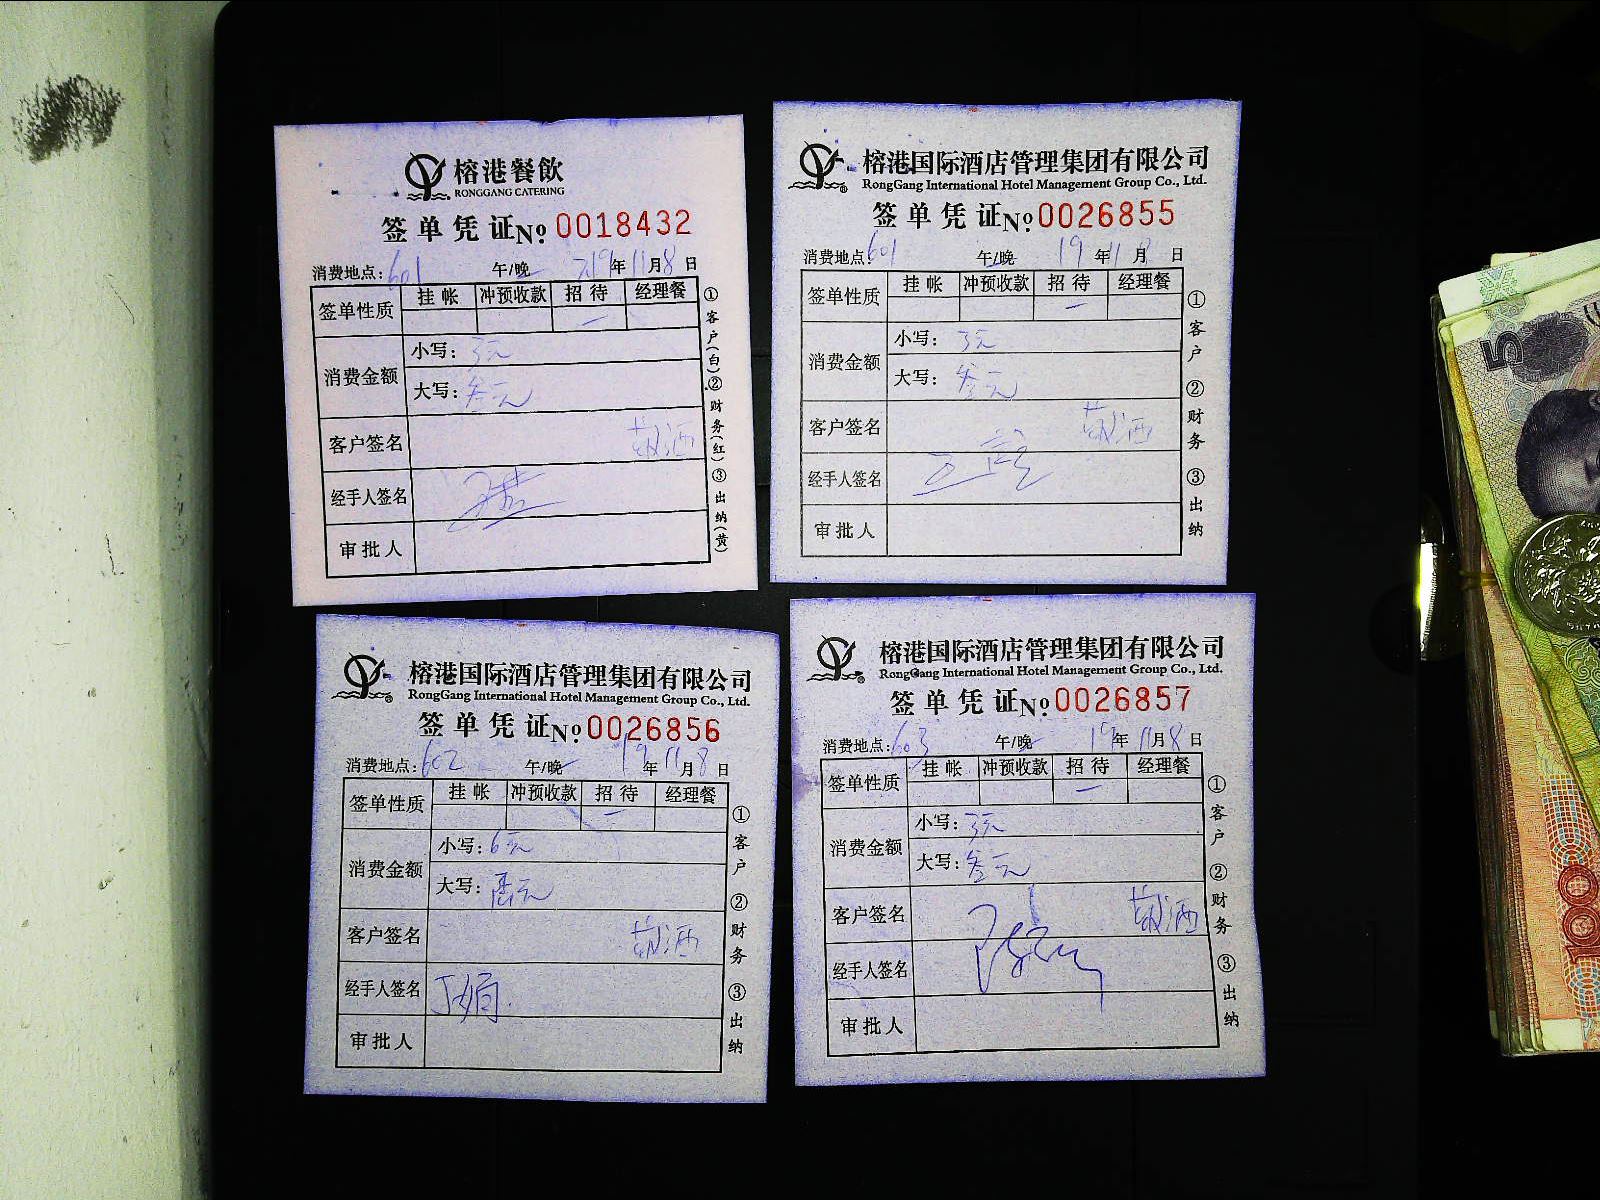 榕港餐飲
RONGGANG CATERING
签单凭证No 0018432
消费地点:601 午/晚 2019年11月8日
签单性质 挂帐 冲预收款 招待 经理餐
消费金额 小写: 3元
大写: 叁元
客户签名 敬酒
经手人签名
审批人
①客户(白)②财务(红)③出纳(黄)
榕港国际酒店管理集团有限公司
RongGang International Hotel Management Group Co., Ltd.
签单凭证No 0026855
消费地点:601 午/晚 19年11月8日
签单性质 挂帐 冲预收款 招待 经理餐
消费金额 小写: 3元
大写: 叁元
客户签名 敬酒
经手人签名
审批人
①客户 ②财务 ③出纳
榕港国际酒店管理集团有限公司
RongGang International Hotel Management Group Co., Ltd.
签单凭证No 0026856
消费地点:602 午/晚 19年11月8日
签单性质 挂帐 冲预收款 招待 经理餐
消费金额 小写: 6元
大写: 元
客户签名 敬酒
经手人签名
审批人
①客户 ②财务 ③出纳
榕港国际酒店管理集团有限公司
RongGang International Hotel Management Group Co., Ltd.
签单凭证No 0026857
消费地点:603 午/晚 19年11月8日
签单性质 挂帐 冲预收款 招待 经理餐
消费金额 小写: 3元
大写: 叁元
客户签名 敬酒
经手人签名
审批人
①客户 ②财务 ③出纳
5
100